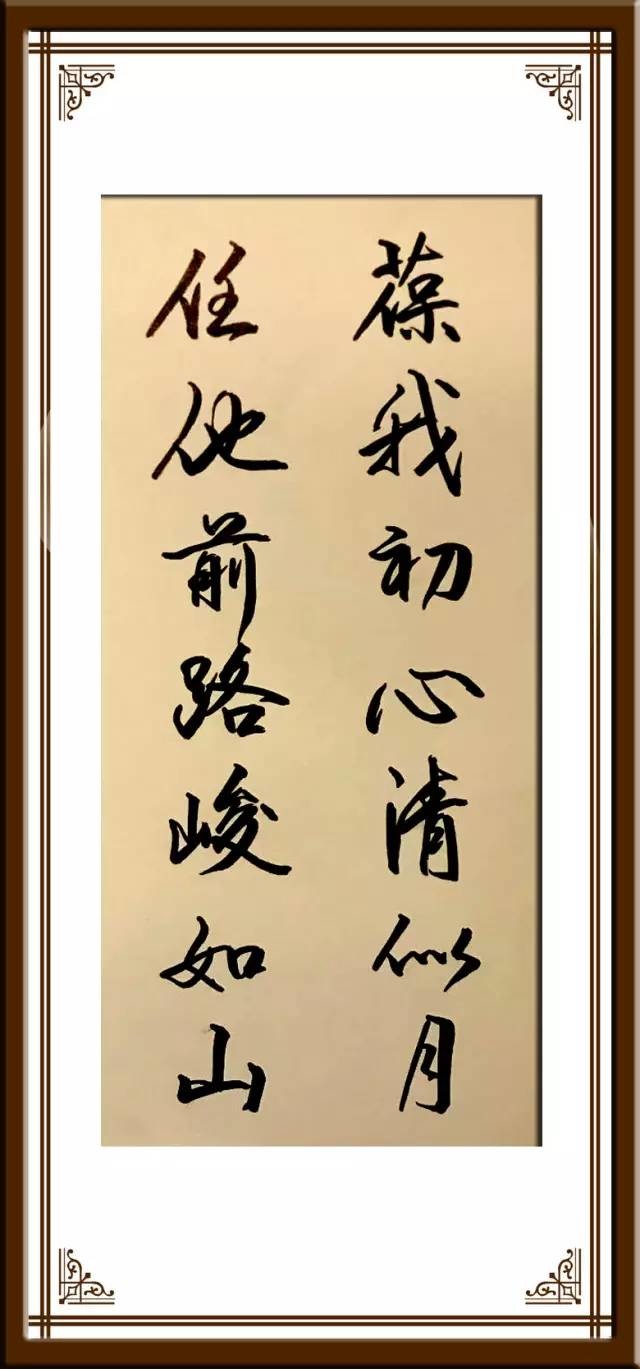 葆我初心清似月
任他前路峻如山